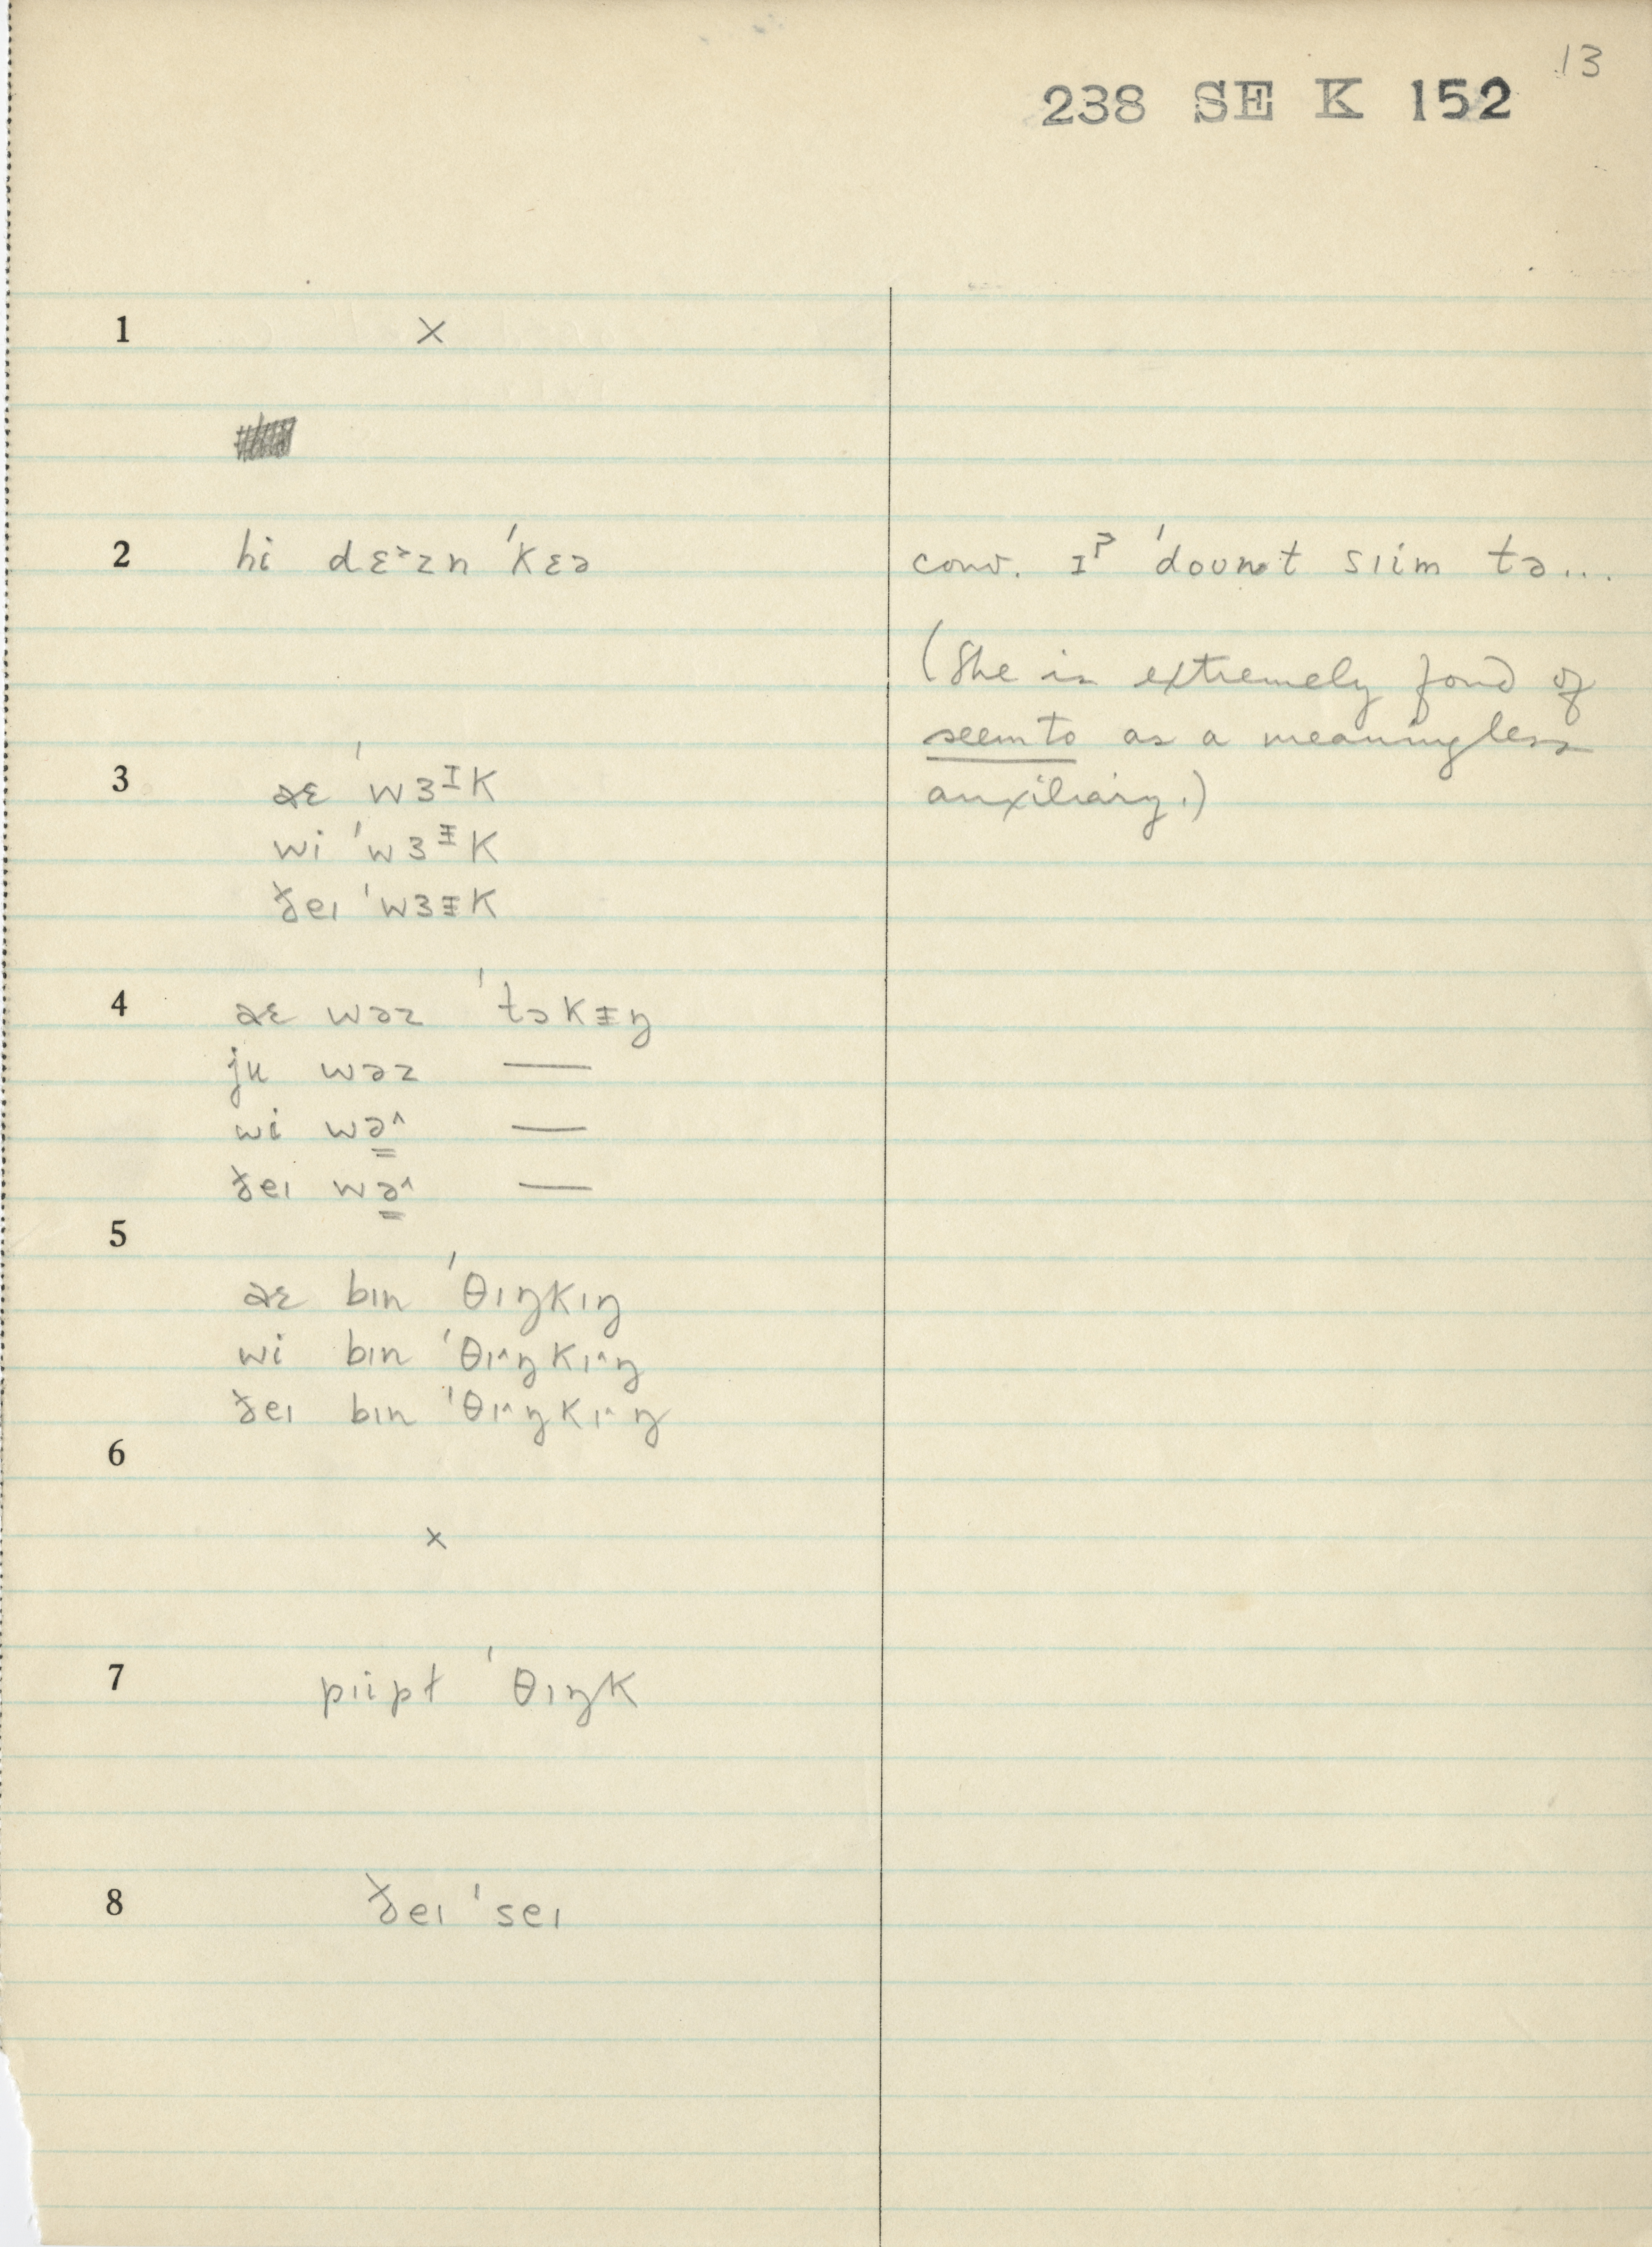 13
238 SE K 152
1 ×
2 hi dɛ˃zn ˈkɛə
conv. ɪˀ ˈdount sɪim tə...
(She is extremely fond of
seem to as a meaningless
auxiliary.)
3 aɛ ˈwɜᴵk
wi ˈwɜᵻk
ðeɪ ˈwɜᵻk
4 aɛ wəz ˈtɔkᵻŋ
ju wəz —
wi wə̳^ —
ðeɪ wə̳^ —
5
aɛ bɪn ˈθɪŋkɪŋ
wi bɪn ˈθɪ^ŋkɪ^ŋ
ðeɪ bɪn ˈθɪ^ŋkɪ^ŋ
6
×
7 pɪipɫ ˈθɪŋk
8 ðeɪ ˈseɪ